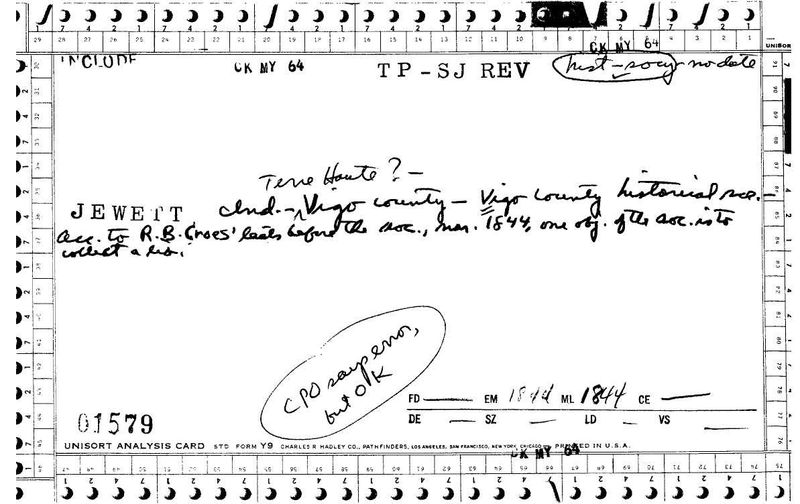 CK MY 64
INCLUDE
CK MY 64
TP-SJ REV
hist-socy-no date
Terre Haute?-
JEWETT
Ind.- Vigo county - Vigo county historical soc.-
acc. to R.B. Croes' before the soc., mar. 1844, one obj. of the soc. is to
collect a
CPO says error,
but OK
FD EM 1844 ML 1844 CE
DE SZ LD VS
01579
UNISORT ANALYSIS CARD STD FORM Y9 CHARLES R HADLEY CO., PATHFINDERS, LOS ANGELES, SAN FRANCISCO, NEW YORK, CHICAGO PRINTED IN U.S.A.
CK MY 64